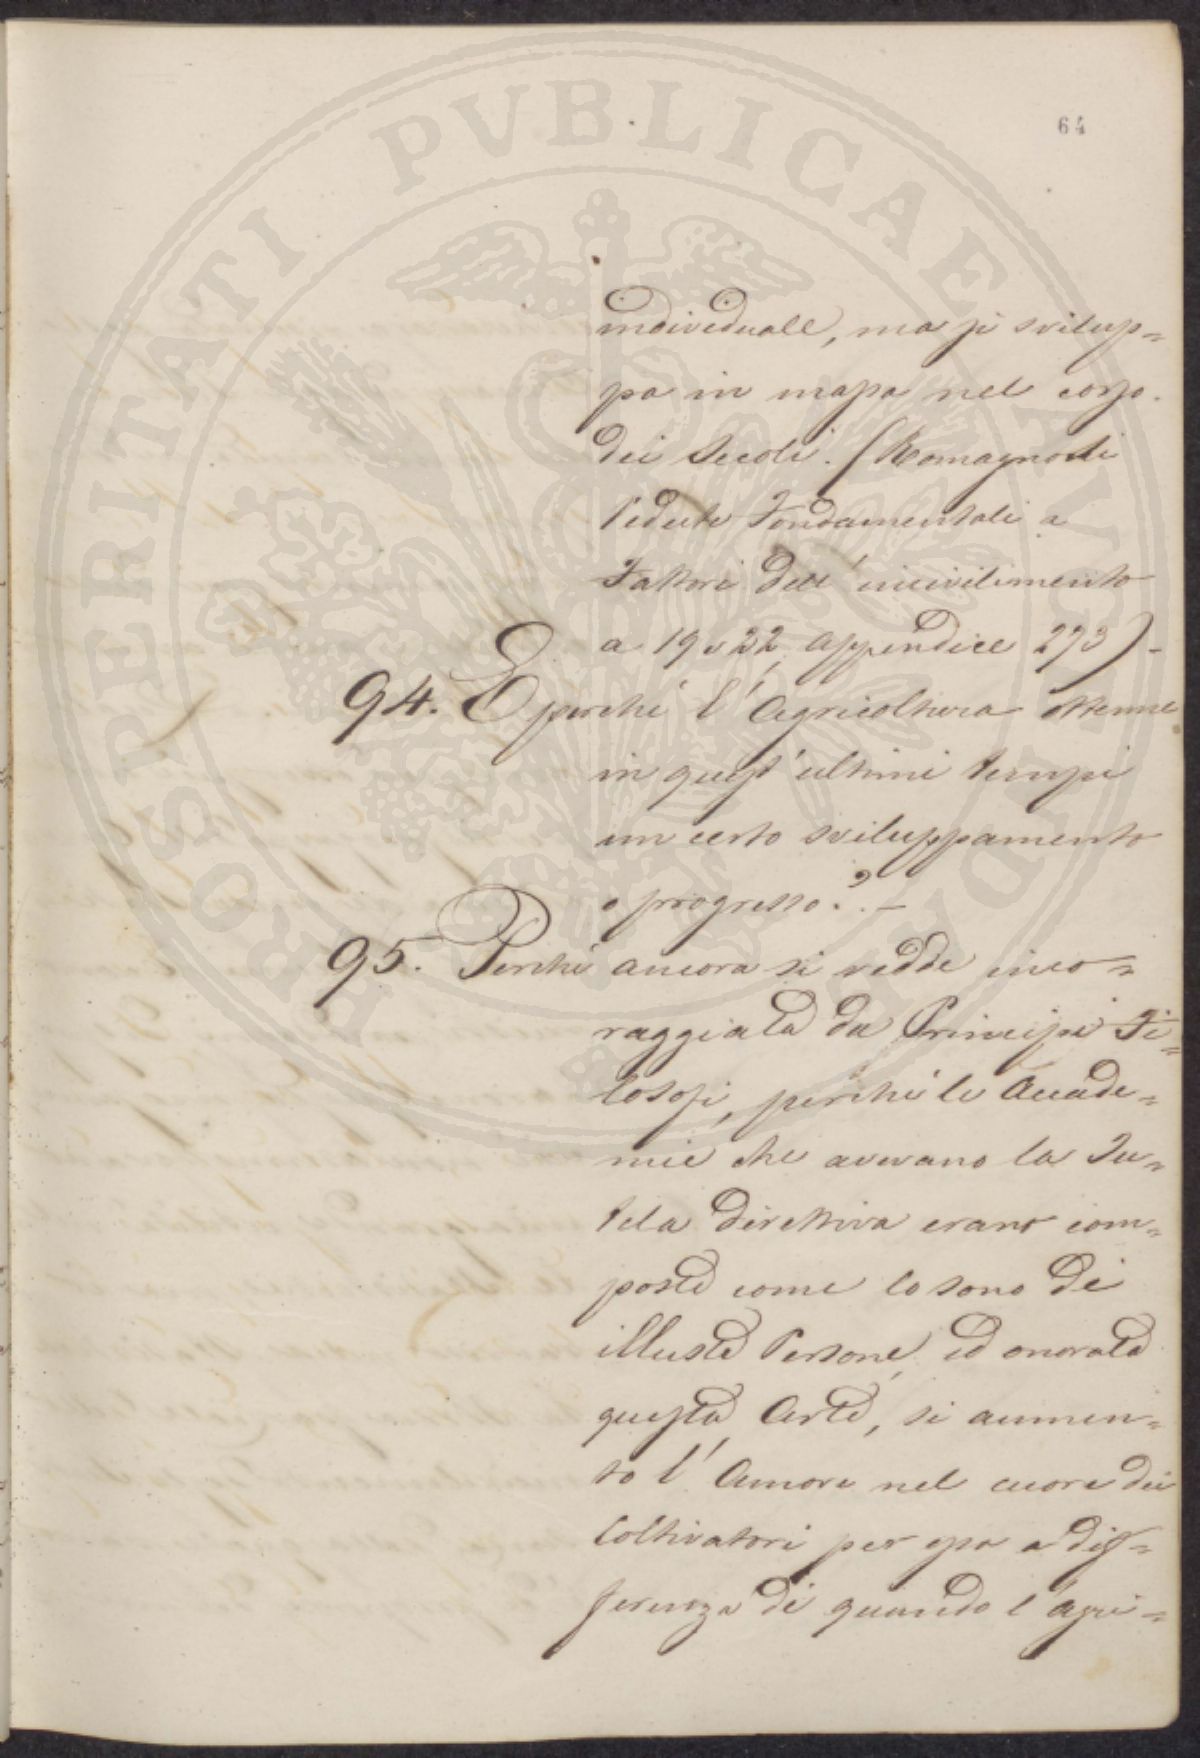 PROSPERITATI PVBLICAE AVGENDAE
64
individuale, ma si svilup=
pa in massa nel corso
dei secoli. (Romagnosi
Vedute Fondamentali a
Fattori dell' incivilimento
a 19 v 22, appendice 273) -
94. E perchè l' Agricoltura ottenne
in quest' ultimi tempi
un certo sviluppamento
o progresso? -
95. Perchè ancora si vedde inco=
raggiata da Principi Fi=
losofi, perchè le Accade=
mie che avevano la Tu=
tela direttiva erano com=
poste come lo sono di
illuste Persone, ed onorata
questa Arte, si aumen=
to l' Amore nel cuore dei
Coltivatori per essa a dif=
ferenza di quando l'agri=